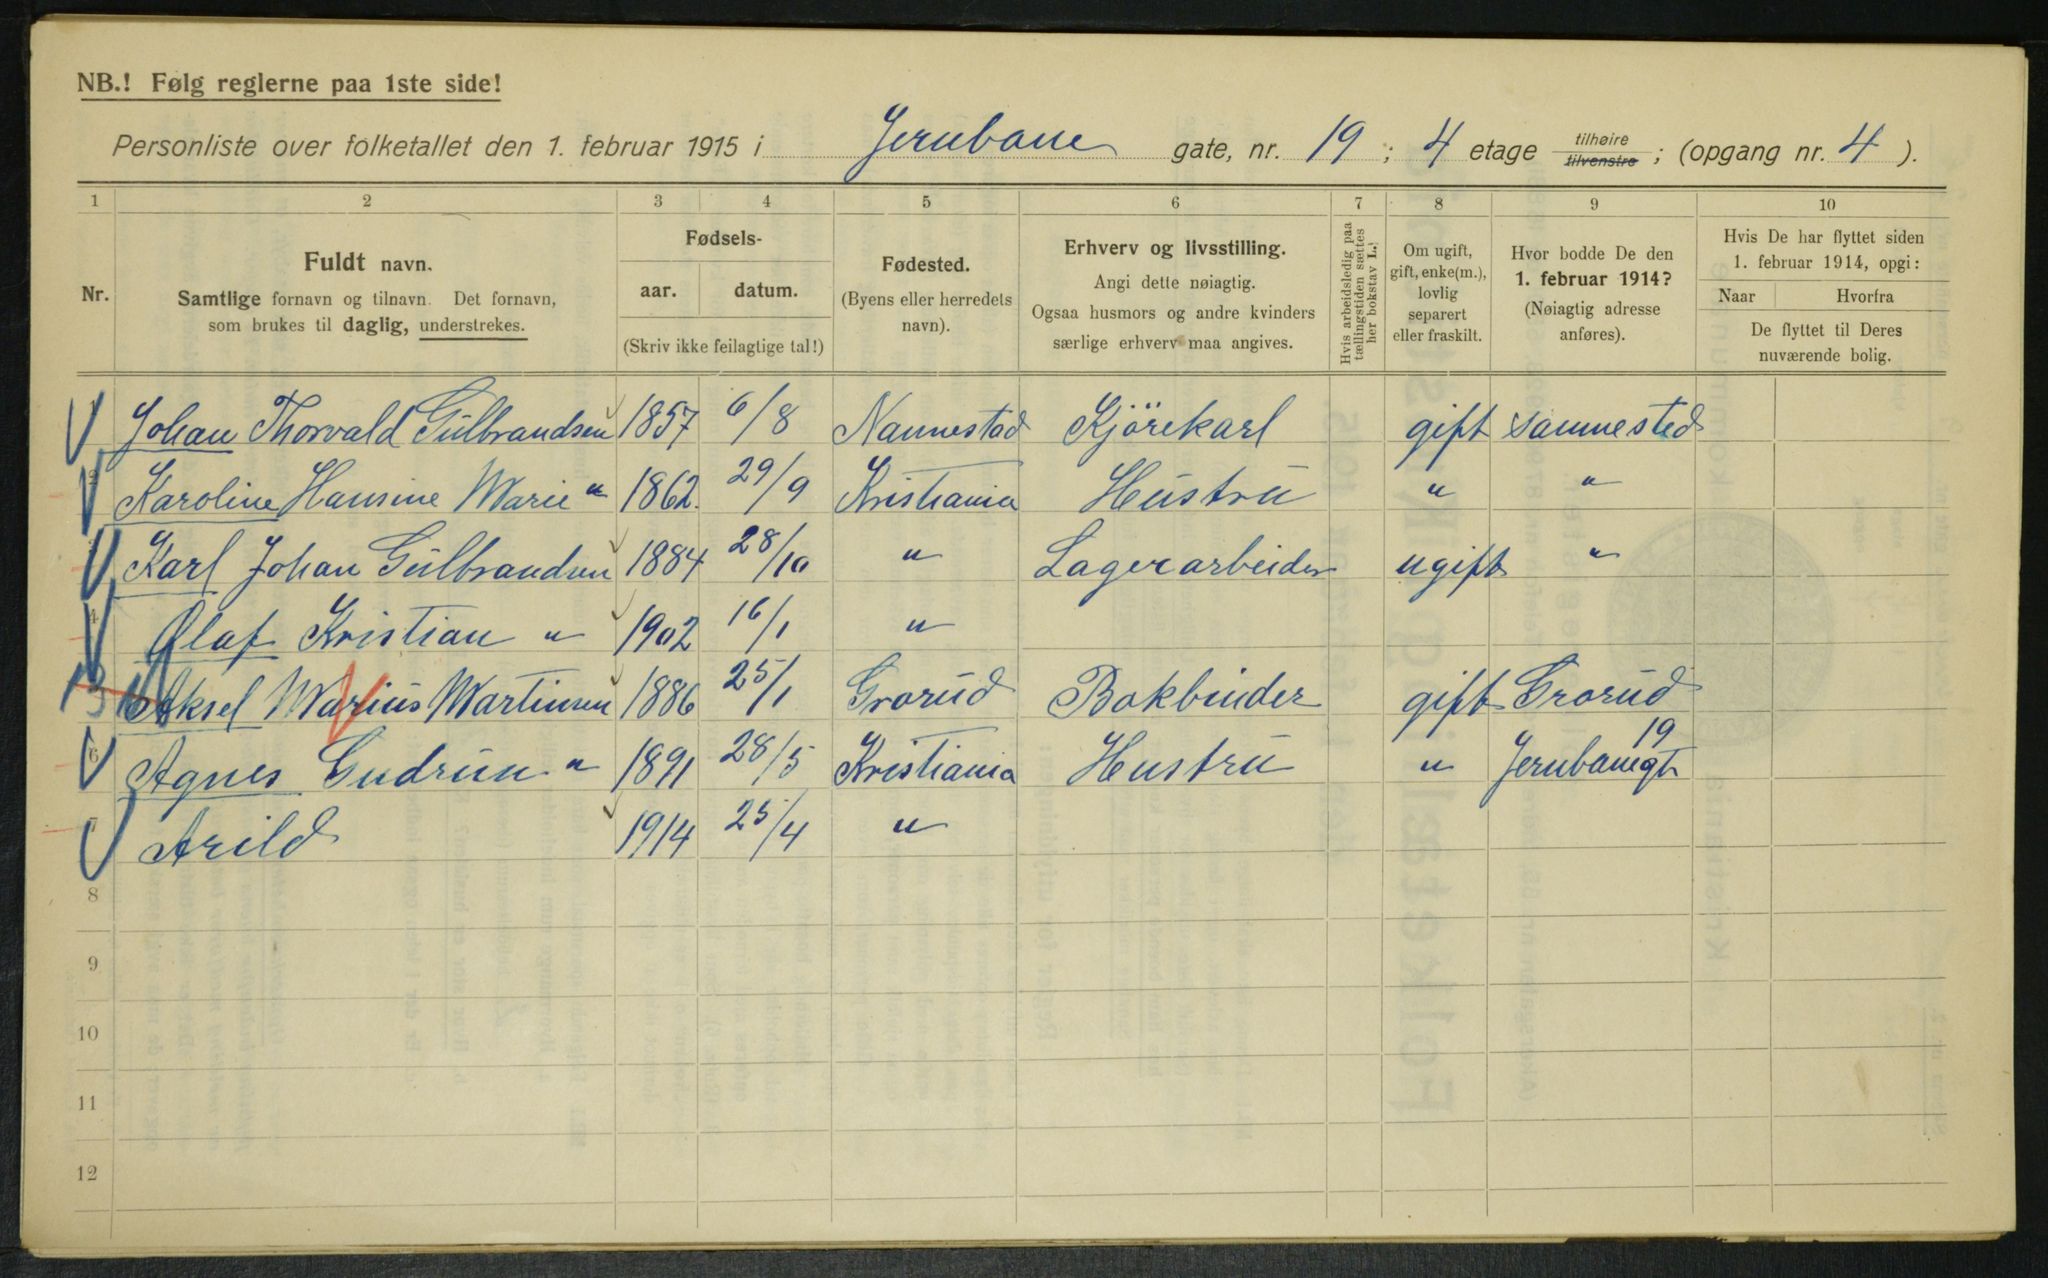 NB.! Følg reglerne paa 1ste side!
Personliste over folketallet den 1. februar 1915 i Jernbane gate, nr. 19 ; 4 etage tilhøire tilvenstre ; (opgang nr. 4 ).
1 2 3 4 5 6 7 8 9 10
Nr.
Fuldt navn.
Samtlige fornavn og tilnavn. Det fornavn,
som brukes til daglig, understrekes.
Fødsels-
aar. datum.
(Skriv ikke feilagtige tal!)
Fødested.
(Byens eller herredets
navn).
Erhverv og livsstilling.
Angi dette nøiagtig.
Ogsaa husmors og andre kvinders
særlige erhverv maa angives.
Hvis arbeidsledig paa
tællingstiden sættes
her bokstav L.!
Om ugift,
gift, enke(m.),
lovlig
separert
eller fraskilt.
Hvor bodde De den
1. februar 1914?
(Nøiagtig adresse
anføres).
Hvis De har flyttet siden
1. februar 1914, opgi:
Naar Hvorfra
De flyttet til Deres
nuværende bolig.
Johan Thorvald Gulbrandsen 1857 6/8 Nannestad Kjörekarl gift sammested
2 Karoline Hansine Marie " 1862. 29/9 Kristiania Hustru " "
3 Karl Johan Gulbrandsen 1884 28/10 " Lagerarbeider ugift "
4 Olaf Kristian " 1902 16/1 "
5 Aksel Marius Martinsen 1886 25/1 Grorud Bokbinder gift Grorud
6 Agnes Gudrun " 1891 28/5 Kristiania Hustru " Jernbanegt 19
7 Arild 1914 25/4 "
8
9
10
11
12